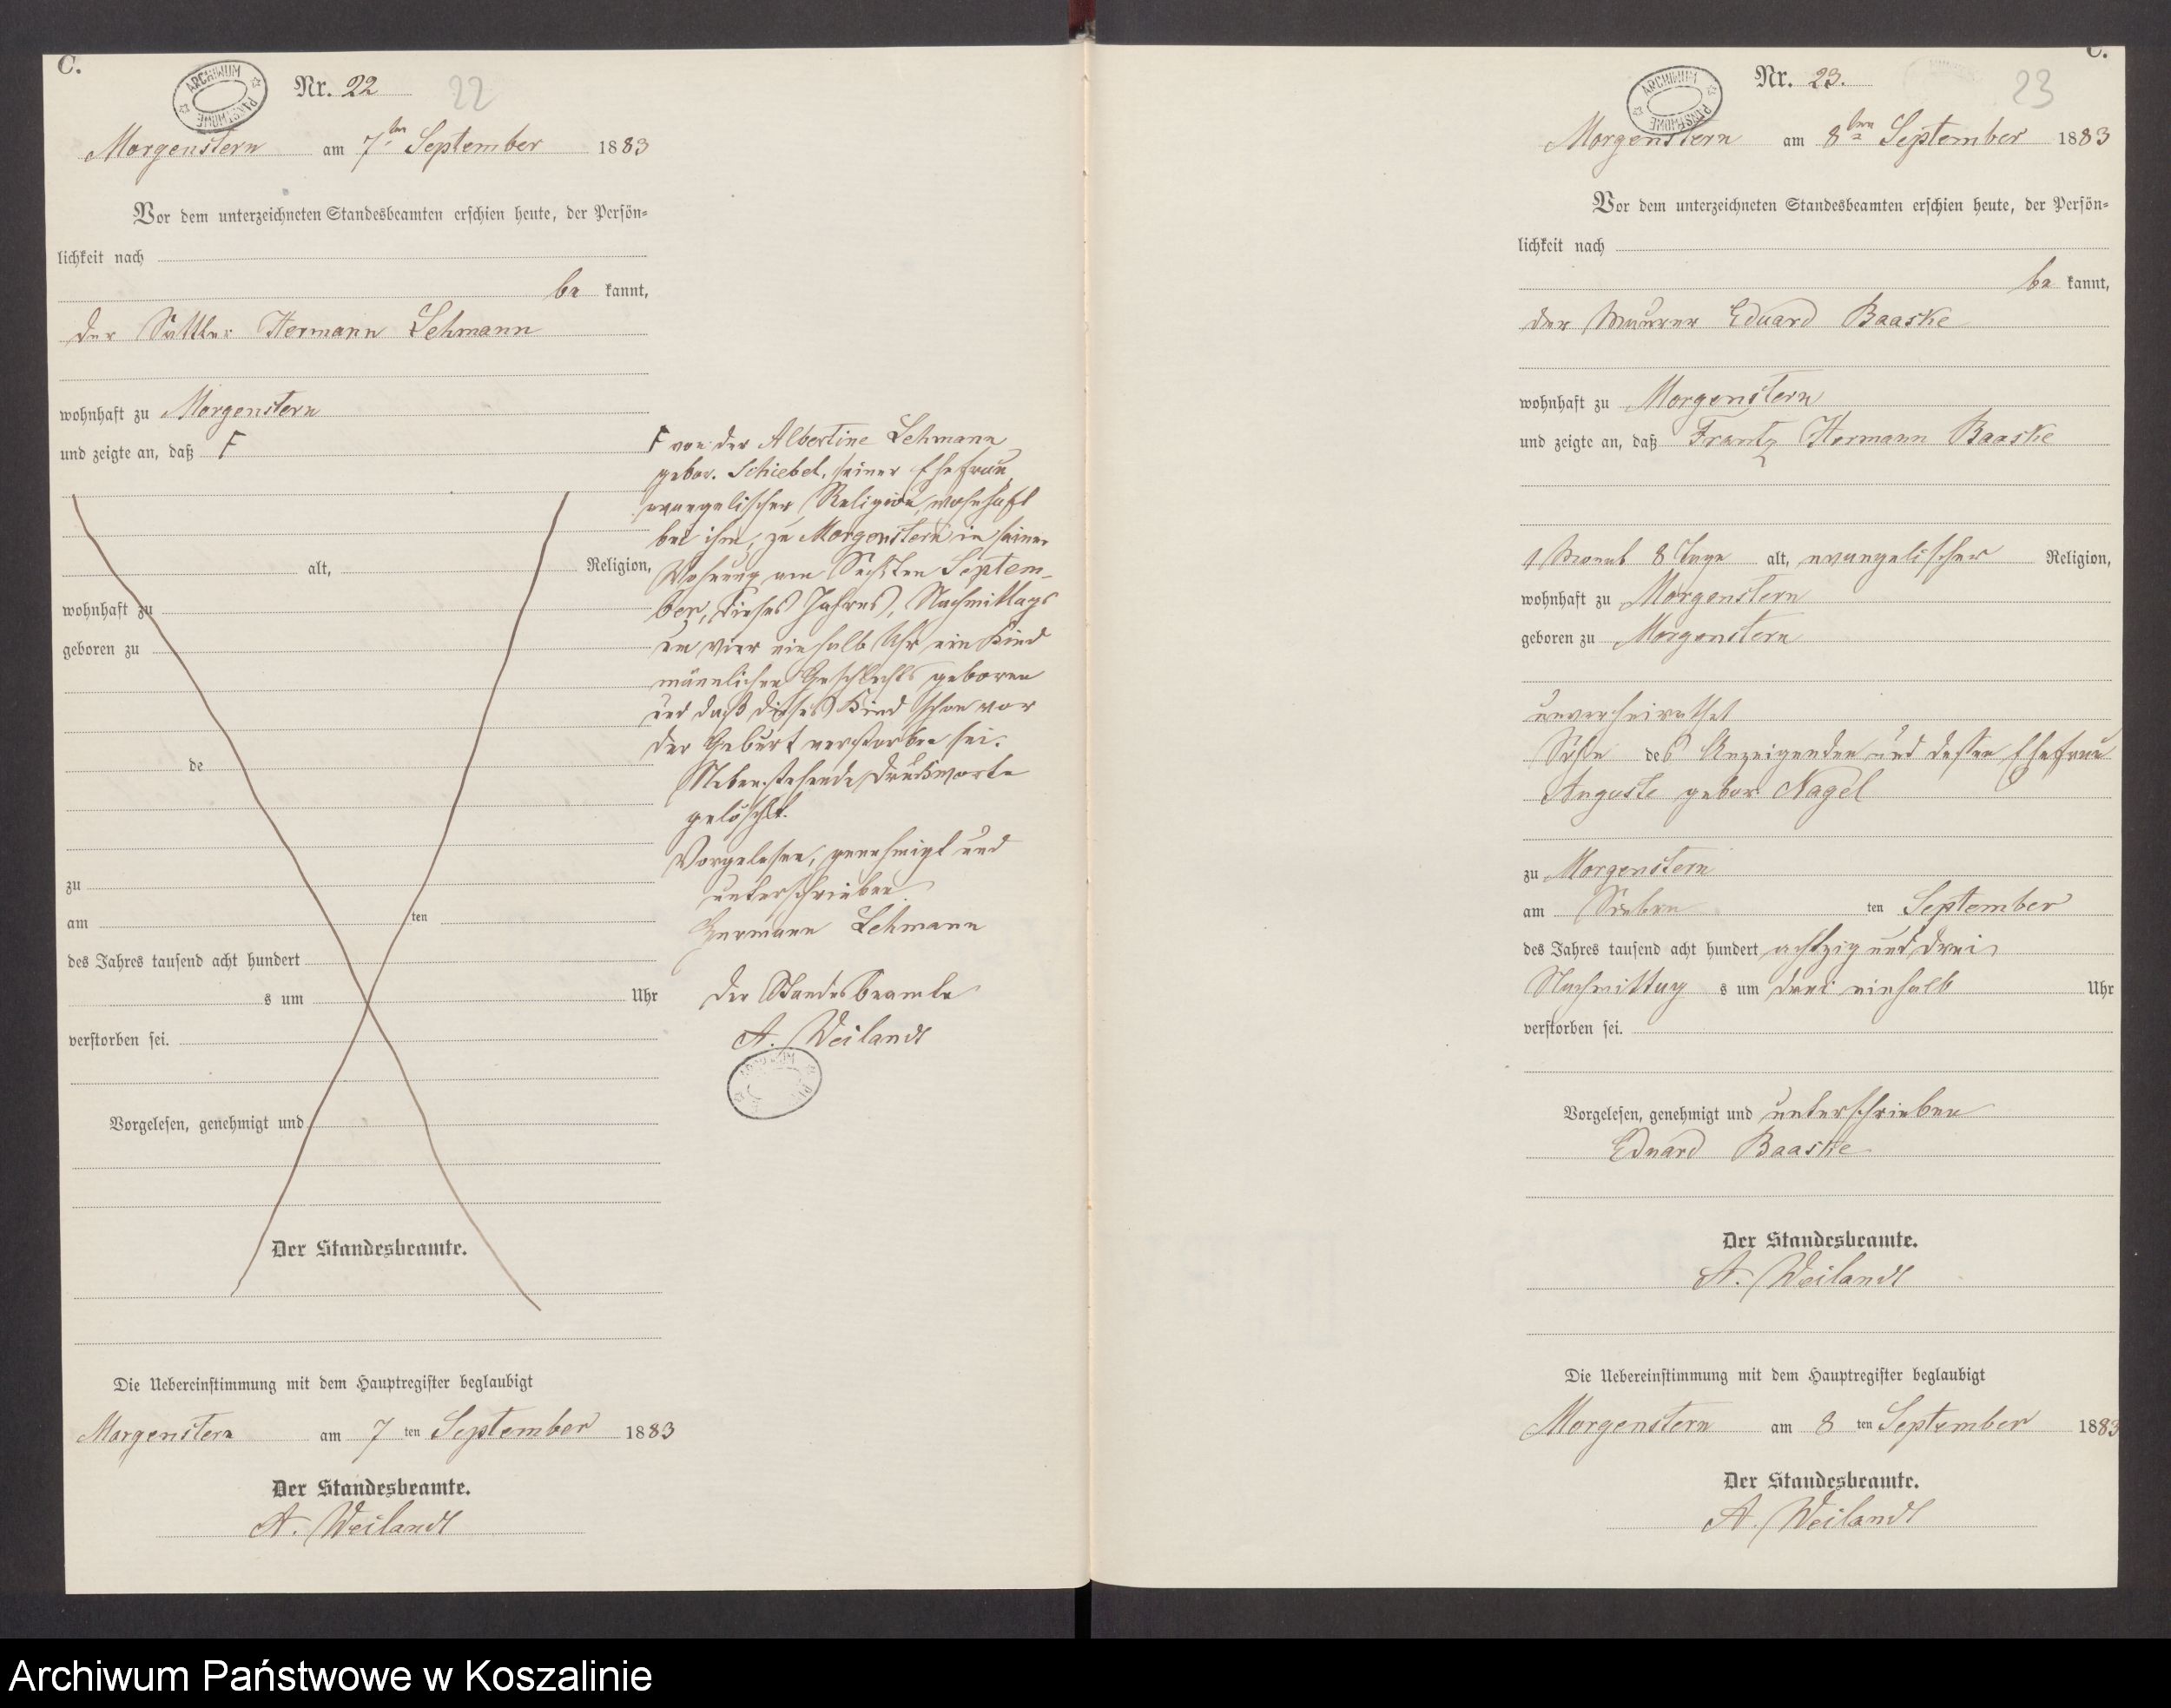 C.
ARCHIWUM PAŃSTWOWE
Nr. 22
22
Morgenstern am 7ten September 1883
Vor dem unterzeichneten Standesbeamten erschien heute, der Persön=
lichkeit nach
be kannt,
der Sattler Hermann Lehmann
wohnhaft zu Morgenstern
und zeigte an, daß F
alt, Religion,
wohnhaft zu
geboren zu
de
zu
am ten
des Jahres tausend acht hundert
s um Uhr
verstorben sei.
Vorgelesen, genehmigt und
Der Standesbeamte.
Die Uebereinstimmung mit dem Hauptregister beglaubigt
Morgenstern am 7 ten September 1883
Der Standesbeamte.
A. Weilandt
F von der Albertine Lehmann
gebor. Schiebel, seiner Ehefrau
evangelischer Religion, wohnhaft
bei ihm, zu Morgenstern in seiner
Wohnung am Sechsten Septem-
ber, dieses Jahres, Nachmittags
um vier einhalb Uhr ein Kind
männlichen Geschlechts geboren
und daß dieses Kind schon vor
der Geburt verstorben sei.
Nebenstehende Druckworte
gelöscht.
Vorgelesen, genehmigt und
unterschrieben
Hermann Lehmann
Der Standesbeamte
A. Weilandt
C.
ARCHIWUM PAŃSTWOWE
Nr. 23.
23
Morgenstern am 8ten September 1883
Vor dem unterzeichneten Standesbeamten erschien heute, der Persön=
lichkeit nach
be kannt,
der Maurer Eduard Baaske
wohnhaft zu Morgenstern
und zeigte an, daß Frantz Hermann Baaske
1 Monat 8 Tage alt, evangelischer Religion,
wohnhaft zu Morgenstern
geboren zu Morgenstern
unverheirathet
Sohn des Anzeigenden und dessen Ehefrau
Auguste gebor Nagel
zu Morgenstern
am Sieben ten September
des Jahres tausend acht hundert achtzig und drei
Nachmittag s um drei einhalb Uhr
verstorben sei.
Vorgelesen, genehmigt und unterschrieben
Eduard Baaske
Der Standesbeamte.
A. Weilandt
Die Uebereinstimmung mit dem Hauptregister beglaubigt
Morgenstern am 8 ten September 1883
Der Standesbeamte.
A. Weilandt
Archiwum Państwowe w Koszalinie